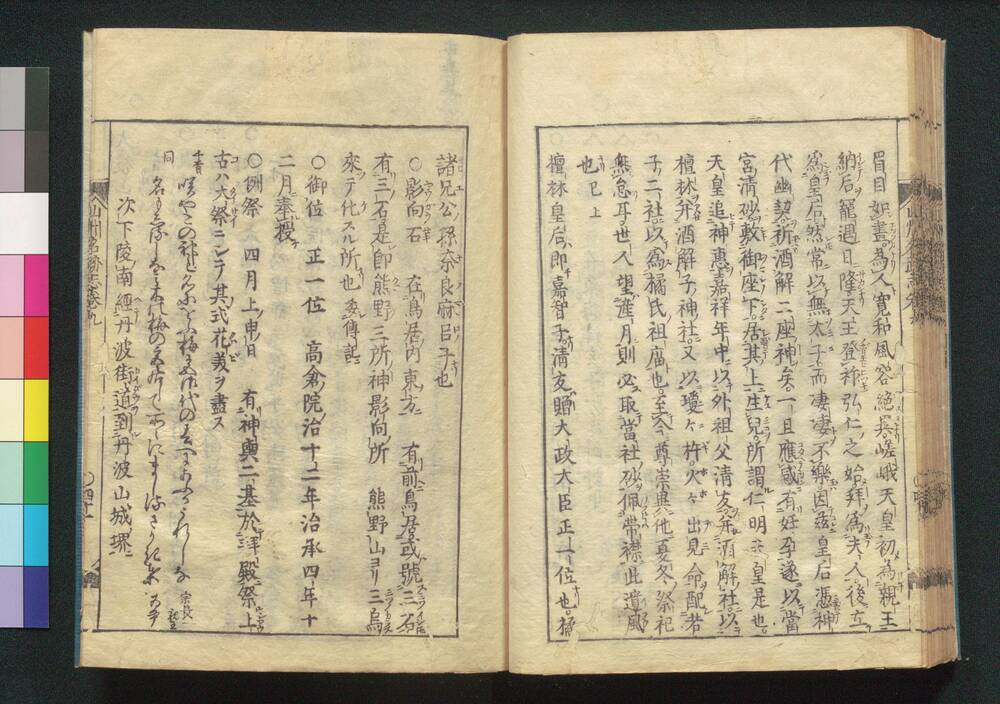 眉目如畫爲人寬和風容絶異嵯峨天皇初爲親王
納后寵遇日隆天王登祚弘仁之始拜爲夫人後立
爲皇后然常以無太子而凄凄不樂因茲皇后憑神
代幽契祈酒解二座神矣一旦應感有妊孕遂以當
宮清砂敷御座下居其上生兒所謂仁明天皇是也
天皇追神惠嘉祥年中以外祖父清友奉酒解社以
檀林并酒解子神社又以瓊々杵火々出見命配若
子二社以爲橘氏祖廟也至今尊崇異他夏冬祭祀
無怠耳世人望産月則必取當社砂佩帶襟此遺風
也已上
檀林皇后即嘉智子清友贈大政大臣正一位也橘
諸兄公孫奈良麻呂子也
○影向石 在鳥居内東方 有前鳥居或號三石
有三石是即熊野三所神影向所 熊野山ヨリ三烏
來テ化スル所也委傳記
○御位 正一位 高倉院治十二年治承四年十
二月奉授
○例祭 四月上申日 有神輿二基於拜殿祭上
古ハ大祭ニシテ其式花美ヲ盡ス
次下陵南經丹波街道到丹波山城堺
山州名跡志巻九
○四十一